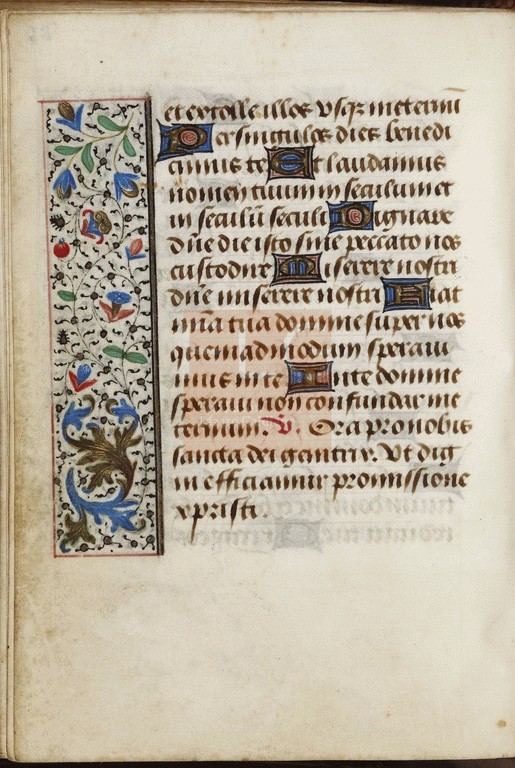 et extolle illos vsqz ineternu
Per singulos dies benedi
cimus te Et laudamus
nomen tuum in seculum et
in seculū seculi Dignare
dn̄e die isto sine peccato nos
custodire Miserere nostri
dn̄e miserere nostri Fiat
mīa tua domine super nos
quemadmodum speraui
mus in te In te domine
speraui non confundar ine
ternum. V. Ora pro nobis
sancta dei genitrix. Vt dig
ni efficiamur promissione
xpristi.